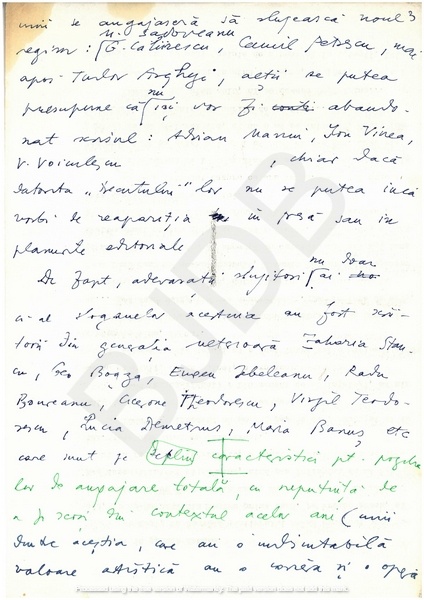 unii se angajaseră să slujească noul 3
M. Sadoveanu
regim: G. Călinescu, Camil Petrescu, mai
apoi Tudor Arghezi, alții se putea
nu
presupune că își vor fi abando-
nat scrisul: Adrian Maniu, Ion Vinea,
V. Voiculescu , chiar dacă
datorita "trecutului" lor nu se putea încă
vorbi de reapariția în presă sau în
planurile editoriale
nu doar
De fapt, adevărați slujitori ai
ci ai sloganelor acestuia au fost scri-
torii din generația Zaharia Stan-
cu, Geo Bogza, Eugen Jebeleanu, Radu
Boureanu, Cicerone Theodorescu, Virgil Teodo-
rescu, Lucia Demetrius, Maria Banuș etc
care sunt deplin caracteristici pt.
lor de angajare totală, cu neputință de
a fi scoși din contextul acelor ani (unii
dintre aceștia, care au o indubitabilă
valoare artistică au o și o operă
BJDB